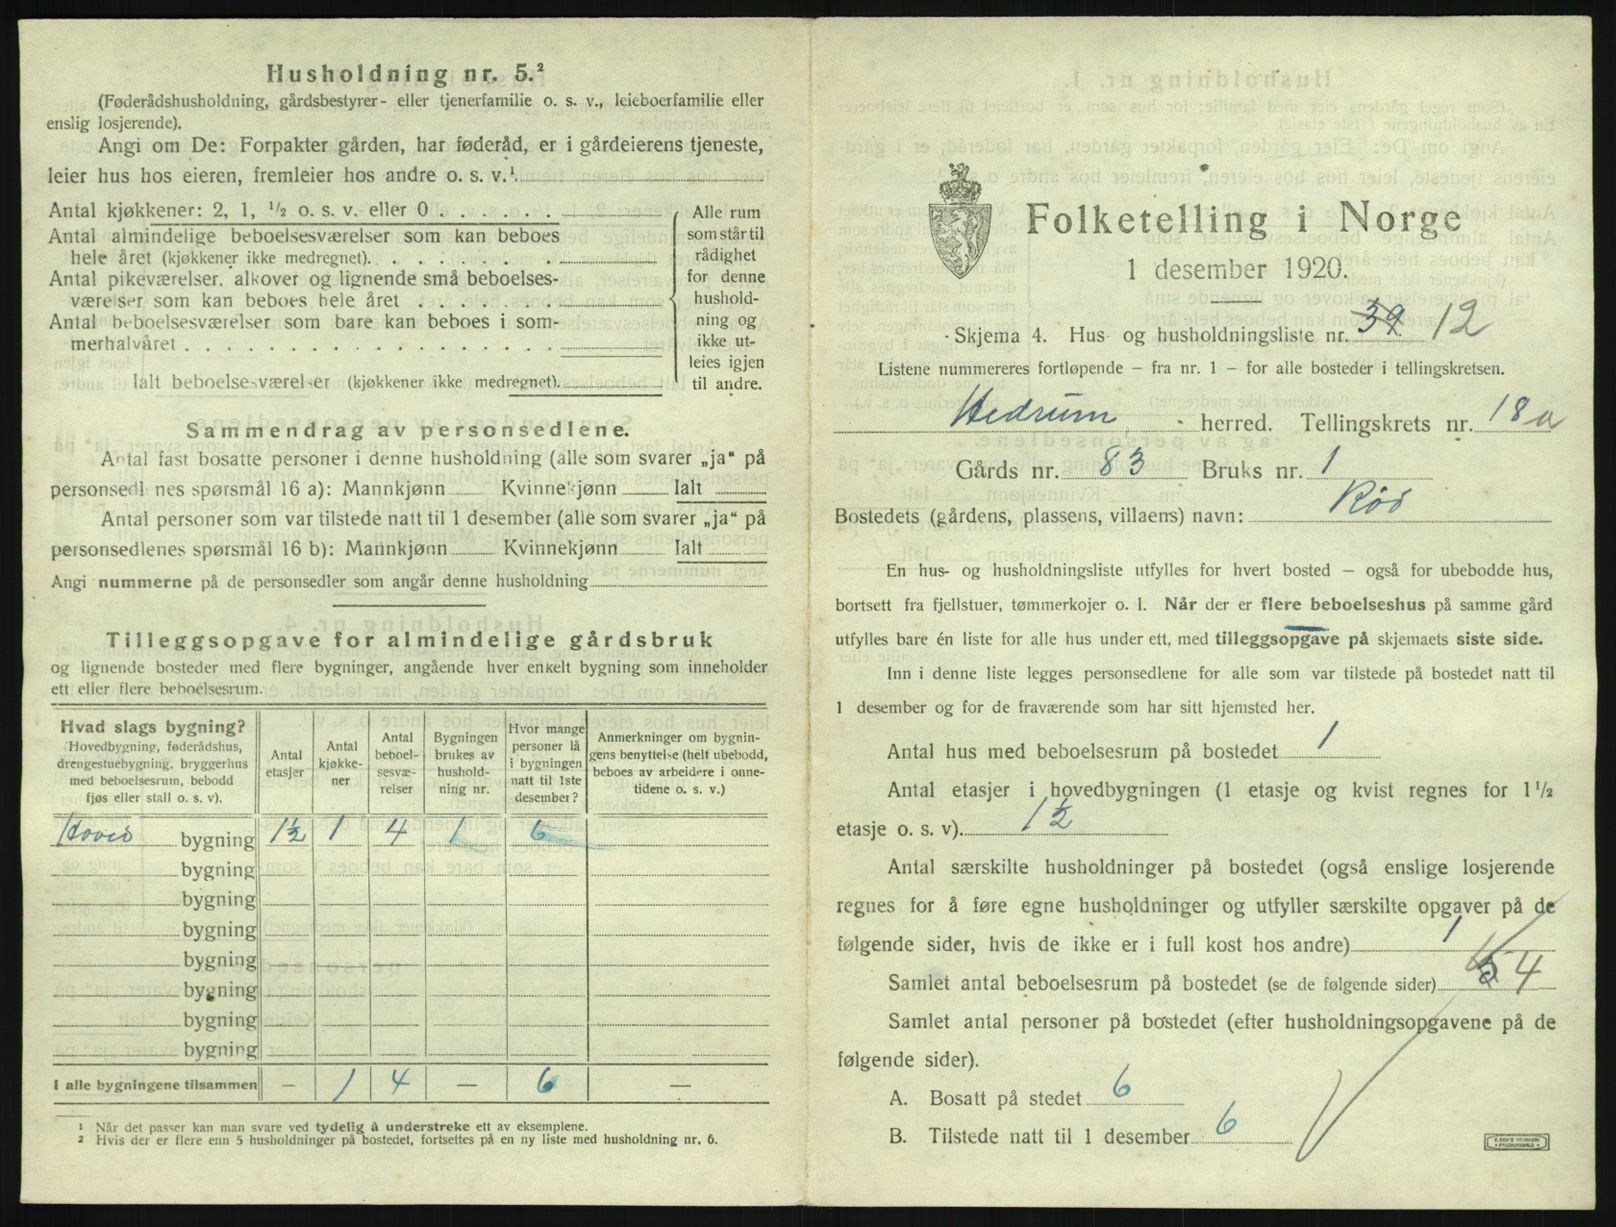 Husholdning nr. 5.²
(Føderådshusholdning, gårdsbestyrer- eller tjenerfamilie o. s. v., leieboerfamilie eller
enslig losjerende).
Angi om De: Forpakter gården, har føderåd, er i gårdeierens tjeneste,
leier hus hos eieren, fremleier hos andre o. s. v.¹
Antal kjøkkener: 2, 1, ½ o. s. v. eller 0
Antal almindelige beboelsesværelser som kan beboes
hele året (kjøkkener ikke medregnet).
Antal pikeværelser, alkover og lignende små beboelses-
værelser som kan beboes hele året
Antal beboelsesværelser som bare kan beboes i som-
merhalvåret
Ialt beboelsesværelser (kjøkkener ikke medregnet).
Alle rum
som står til
rådighet
for denne
hushold-
ning og
ikke ut-
leies igjen
til andre.
Sammendrag av personsedlene.
Antal fast bosatte personer i denne husholdning (alle som svarer „ja“ på
personsedl nes spørsmål 16 a): Mannkjønn Kvinnekjønn Ialt
Antal personer som var tilstede natt til 1 desember (alle som svarer „ja“ på
personsedlenes spørsmål 16 b): Mannkjønn Kvinnekjønn Ialt
Angi nummerne på de personsedler som angår denne husholdning
Tilleggsopgave for almindelige gårdsbruk
og lignende bosteder med flere bygninger, angående hver enkelt bygning som inneholder
ett eller flere beboelsesrum.
Hvad slags bygning?
(Hovedbygning, føderådshus,
drengestuebygning, bryggerhus
med beboelsesrum, bebodd
fjøs eller stall o. s. v).
Antal
etasjer
Antal
kjøkke-
ner
Antal
beboel-
sesvæ-
relser
Bygningen
brukes av
hushold-
ning nr.
Hvor mange
personer lå
i bygningen
natt til 1ste
desember?
Anmerkninger om bygnin-
gens benyttelse (helt ubebodd,
beboes av arbeidere i onne-
tidene o. s. v.)
Hoved bygning 1½ 1 4 1 6
bygning
bygning
bygning
bygning
bygning
bygning
bygning
I alle bygningene tilsammen — 1 4 — 6 —
¹ Når det passer kan man svare ved tydelig å understreke ett av eksemplene.
² Hvis der er flere enn 5 husholdninger på bostedet, fortsettes på en ny liste med husholdning nr. 6.
Folketelling i Norge
1 desember 1920.
Skjema 4. Hus- og husholdningsliste nr. 39 12
Listene nummereres fortløpende – fra nr. 1 – for alle bosteder i tellingskretsen.
Hedrum herred. Tellingskrets nr. 18a
Gårds nr. 83 Bruks nr. 1
Bostedets (gårdens, plassens, villaens) navn: Röd
En hus- og husholdningsliste utfylles for hvert bosted – også for ubebodde hus,
bortsett fra fjellstuer, tømmerkojer o. l. Når der er flere beboelseshus på samme gård
utfylles bare én liste for alle hus under ett, med tilleggsopgave på skjemaets siste side.
Inn i denne liste legges personsedlene for alle som var tilstede på bostedet natt til
1 desember og for de fraværende som har sitt hjemsted her.
Antal hus med beboelsesrum på bostedet 1
Antal etasjer i hovedbygningen (1 etasje og kvist regnes for 1½
etasje o. s. v). 1½
Antal særskilte husholdninger på bostedet (også enslige losjerende
regnes for å føre egne husholdninger og utfyller særskilte opgaver på de
følgende sider, hvis de ikke er i full kost hos andre) 1
Samlet antal beboelsesrum på bostedet (se de følgende sider) 5 4
Samlet antal personer på bostedet (efter husholdningsopgavene på de
følgende sider).
A. Bosatt på stedet 6
B. Tilstede natt til 1 desember 6